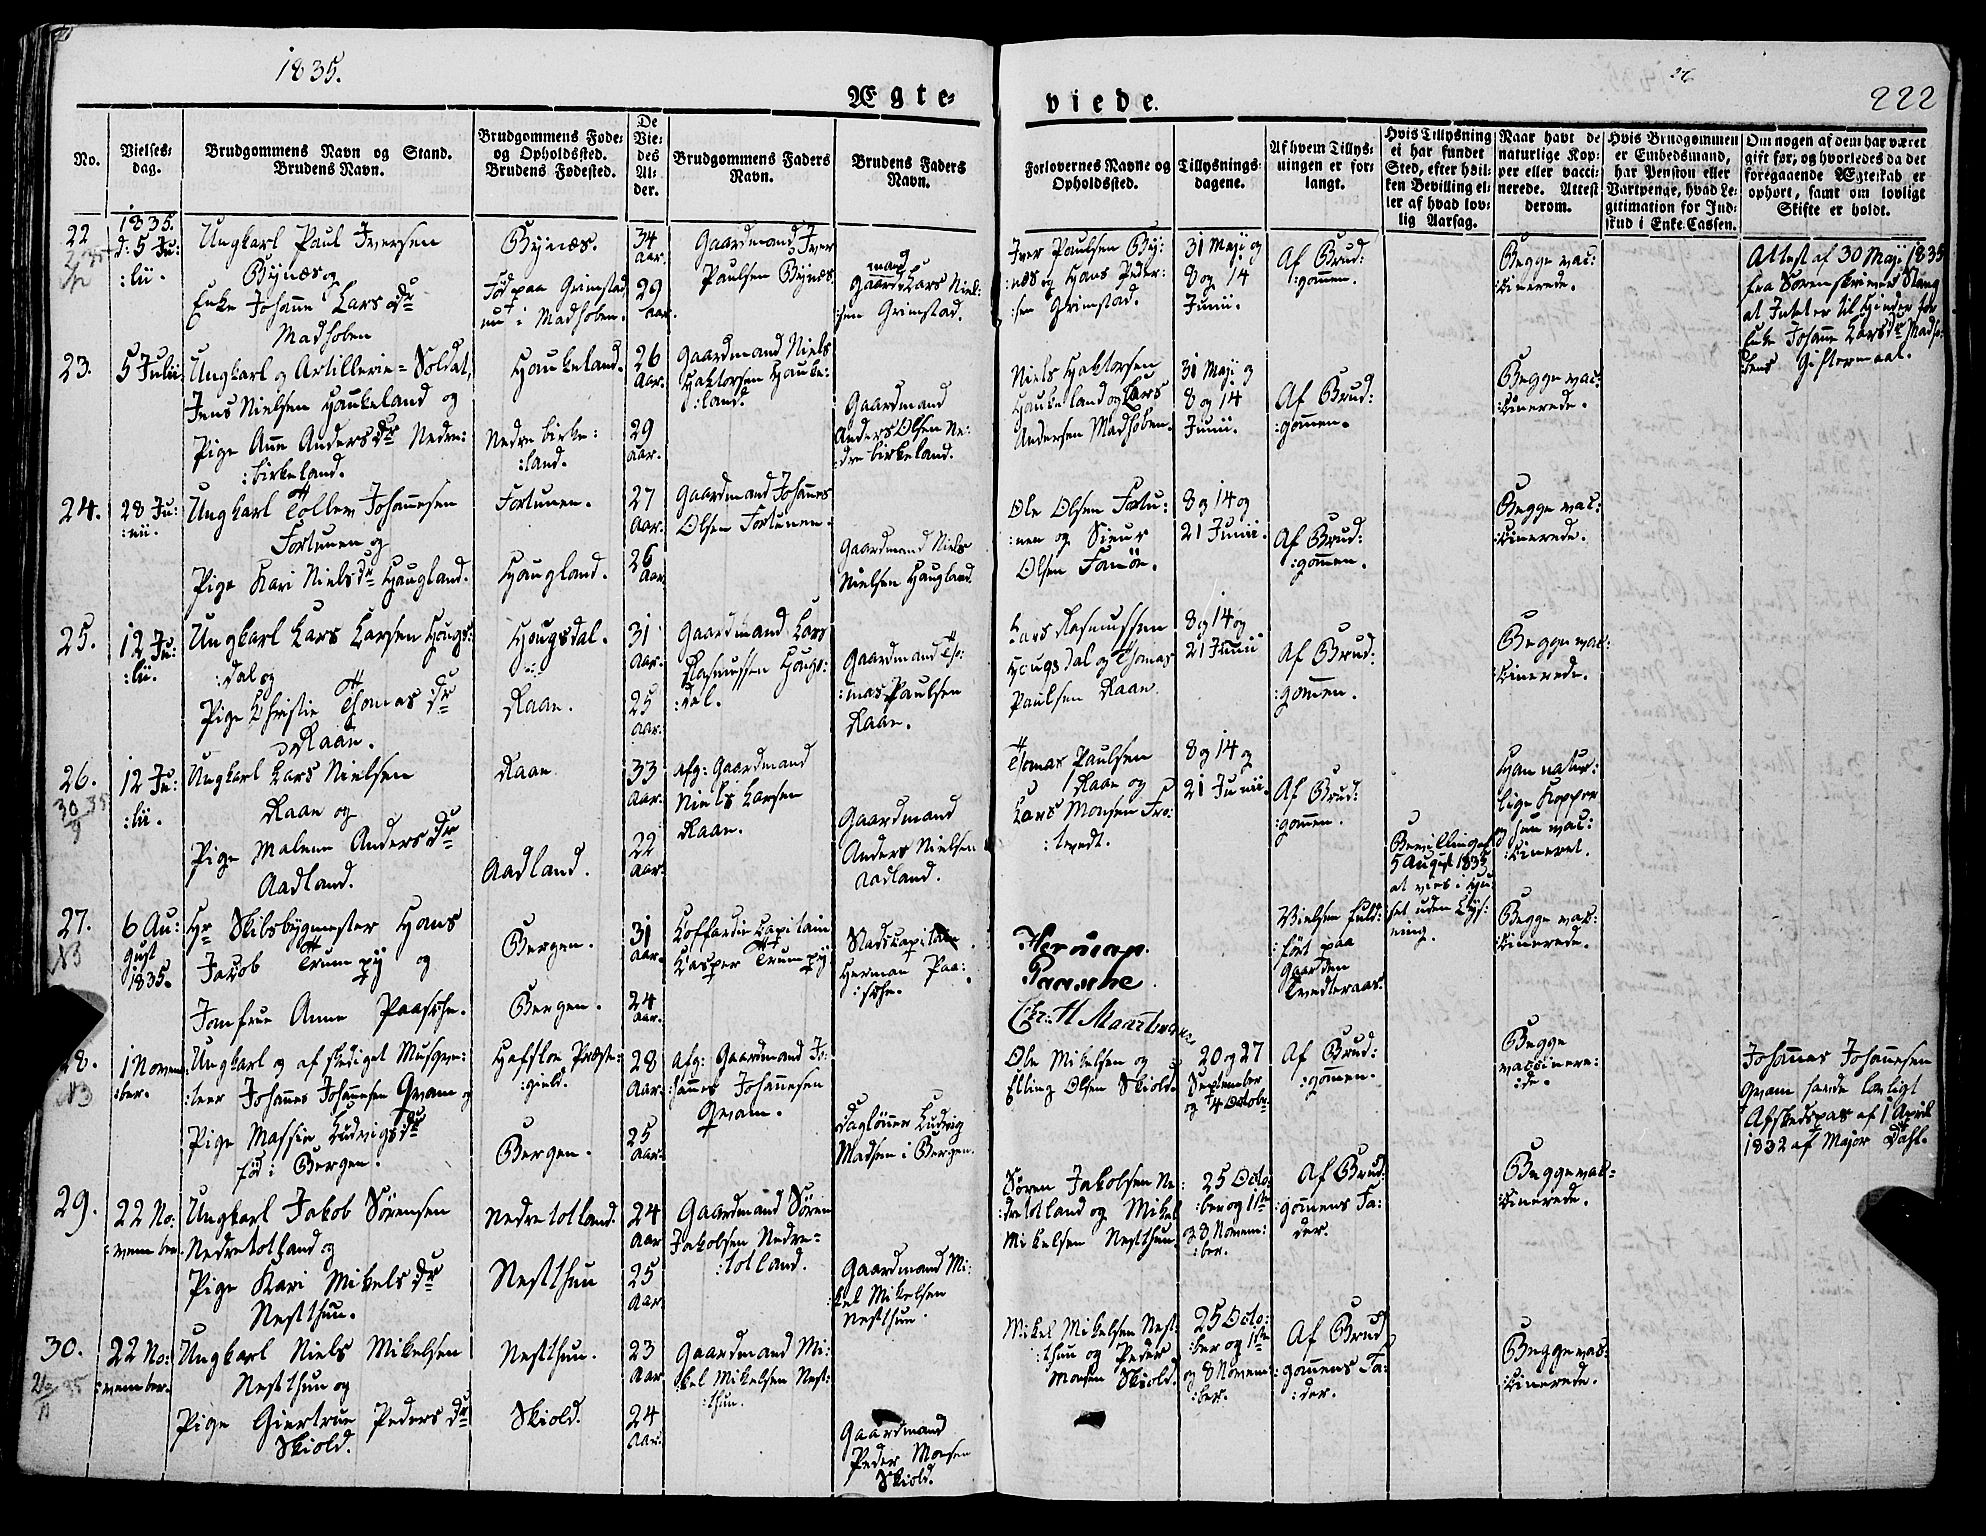 1835.
222
Ægte-
viede.
No.
Vielses-
dag.
Brudgommens Navn og Stand.
Brudens Navn.
Brudgommens Føde-
og Opholdssted.
Brudens Fødested.
De
Vie-
des
Al-
der.
Brudgommens Faders
Navn.
Brudens Faders
Navn.
Forlovernes Navne og
Opholdssted.
Tillysnings-
dagene.
Af hvem Tillys-
ningen er for-
langt.
Hvis Tillysning
ei har fundet
Sted, efter hvil-
ken Bevilling el-
ler af hvad lov-
lig Aarsag.
Naar havt de
naturlige Kop-
per eller vacci-
nerede. Attest
derom.
Hvis Brudgommen
er Embedsmand,
har Pension eller
Vartpenge, hvad Le-
gitimation for Ind-
skud i Enke-Cassen.
Om nogen af dem har været
gift før, og hvorledes da det
foregaaende Ægteskab er
ophørt, samt om lovligt
Skifte er holdt.
22
1835.
d: 5 Ju:
:lii.
Ungkarl Paul Iversen
Bynæs og
Enke Johanne Lars Dr
Madhoben
Bynæs.
Fød paa Grimstad
nu i Madhoben.
34
aar.
29
aar.
Gaardmand Iver
Paulsen Bynæs.
Gaardmand Lars Niel:
:sen Grimstad.
Iver Paulsen By:
:næs og Hans Peder:
:sen Grimstad.
31 Maji og
8 og 14
Junii.
Af Brud:
:gommen.
Begge vac:
:cinerede.
Attest af 30 Maji 1835
fra Sorenskriver Stang
at Intet er til Hinder for
Enke Johanne Lars Dr Madho:
:bens Giftermaal.
23.
5 Julii
Ungkarl og Artillerie-Soldat,
Jens Nielsen Haukeland og
Pige Anne Anders Dr Nedre:
:birkeland.
Haukeland.
Nedre birke:
:land.
26
Aar.
29
aar.
Gaardmand Niels
Haktorsen Hauke:
:land.
Gaardmand
Anders Olsen Ne:
:dre birkeland.
Niels Haktorsen
Haukeland og Lars
Andersen Madhoben.
31 Maji og
8 og 14
Junii.
Af Brud:
:gommen.
Begge vac:
:cinerede.
24.
28 Ju:
:nii.
Ungkarl Tollev Johannesen
Fortunen og
Pige Kari Niels Dr Haugland.
Fortunen.
Haugland.
27
aar.
26
aar
Gaardmand Johannes
Olsen Fortunen.
Gaardmand Niels
Nielsen Haugland.
Ole Olsen Fortu:
:nen og Sieur
Olsen Fanøn.
8 og 14 og
21 Junii.
Af Brud:
:gommen.
Begge vac:
:cinerede.
25.
12 Ju:
:lii.
Ungkarl Lars Larsen Hougs:
:dal og
Pige Christie Thomas Dr
Raan.
Hougsdal.
Raan.
31
aar.
25
aar.
Gaardmand Lars
Rasmussen Hougs:
:dal.
Gaardmand Tho:
:mas Paulsen
Raan.
Lars Rasmussen
Hougsdal og Thomas
Paulsen Raan.
8 og 14 og
21 Junii
Af Brud:
:gommen.
Begge vac:
:cinerede.
26.
12 Ju:
:lii.
Ungkarl Lars Nielsen
Raan og
Pige Malene Anders Dr
Aadland.
Raan
Aadland.
33
aar.
22
aar.
Afg: Gaardmand
Niels Larsen
Raan.
Gaardmand
Anders Nielsen
Aadland.
Thomas Paulsen
Raan og
Lars Monsen Fro:
:tvedt.
8 og 14 og
21 Junii.
Af Brud:
gommen.
Han natur:
lige Kopper
og hun vac:
:cineret.
27.
6 Au:
gust
1835.
Hr Skibsbygmester Hans
Jacob Trumpy og
Jomfrue Anne Paasche.
Bergen.
Bergen.
31
aar.
24
aar.
Coffardie Capitain
Casper Trumpy
Stadscapitain
Herman Paa:
:sche.
Herman
Paasche
Chr: H Maartmann
Vielsen fuld:
:ført paa
Gaarden
Tvedteraas.
Bevilling af
5 August 1835
at vies i Hu:
set uden Lys:
ning.
Begge vac:
:cinerede.
28.
1 Novem
:ber.
Ungkarl og afskediget Musque:
:teer Johannes Johannesen Qvam og
Pige Massie Ludvigs Dr
fød i Bergen.
Hafsloe Præste:
:gield.
Bergen.
28
Aar.
25
aar.
Afg: Gaardmand Jo:
:hannes Johannesen
Qvam.
Dagløner Ludvig
Madsen i Bergen.
Ole Mikelsen og
Elling Olsen Skiold.
20 og 27
September
og 4 Octobr.
Af Brud:
:gommen.
Begge
vaccinere:
:de.
Johannes Johannesen
Qvam havde lovligt
Afskedspas af 1 April
1832 af Major Dahl.
29.
22 No:
:vember.
Ungkarl Jakob Sørensen
Nedretotland og
Pige Kari Mikels Dr
Nestthun.
Nedretotland.
Nestthun
24
Aar
25
Aar.
Gaardmand Søren
Jakobsen Nedre-
:totland.
Gaardmand Mi:
:kel Mikelsen
Nestthun.
Søren Jakobsen Ne:
:dretotland og Mikel
Mikelsen Nestthun.
25 Octo:
:ber og 1ste
og 8 Novem:
:ber.
Af Brud:
:gommens Fa:
der.
Begge vac:
:cinerede.
30.
22 No:
:vember.
Ungkarl Niels Mikelsen
Nestthun og
Pige Giertrue Peders Dr
Skiold.
Nestthun.
Skiold.
23
Aar
24
Aar.
Gaardmand Mi:
:kel Mikelsen Nest:
:thun.
Gaardmand
Peder Monsen
Skiold.
Mikel Mikelsen Nest:
:thun og Peder
Monsen Skiold.
25 Octo:
:ber og 1ste
og 8 Novem:
:ber.
Af Brud
:gommens Fa:
:der.
Begge vac:
:cinerede.